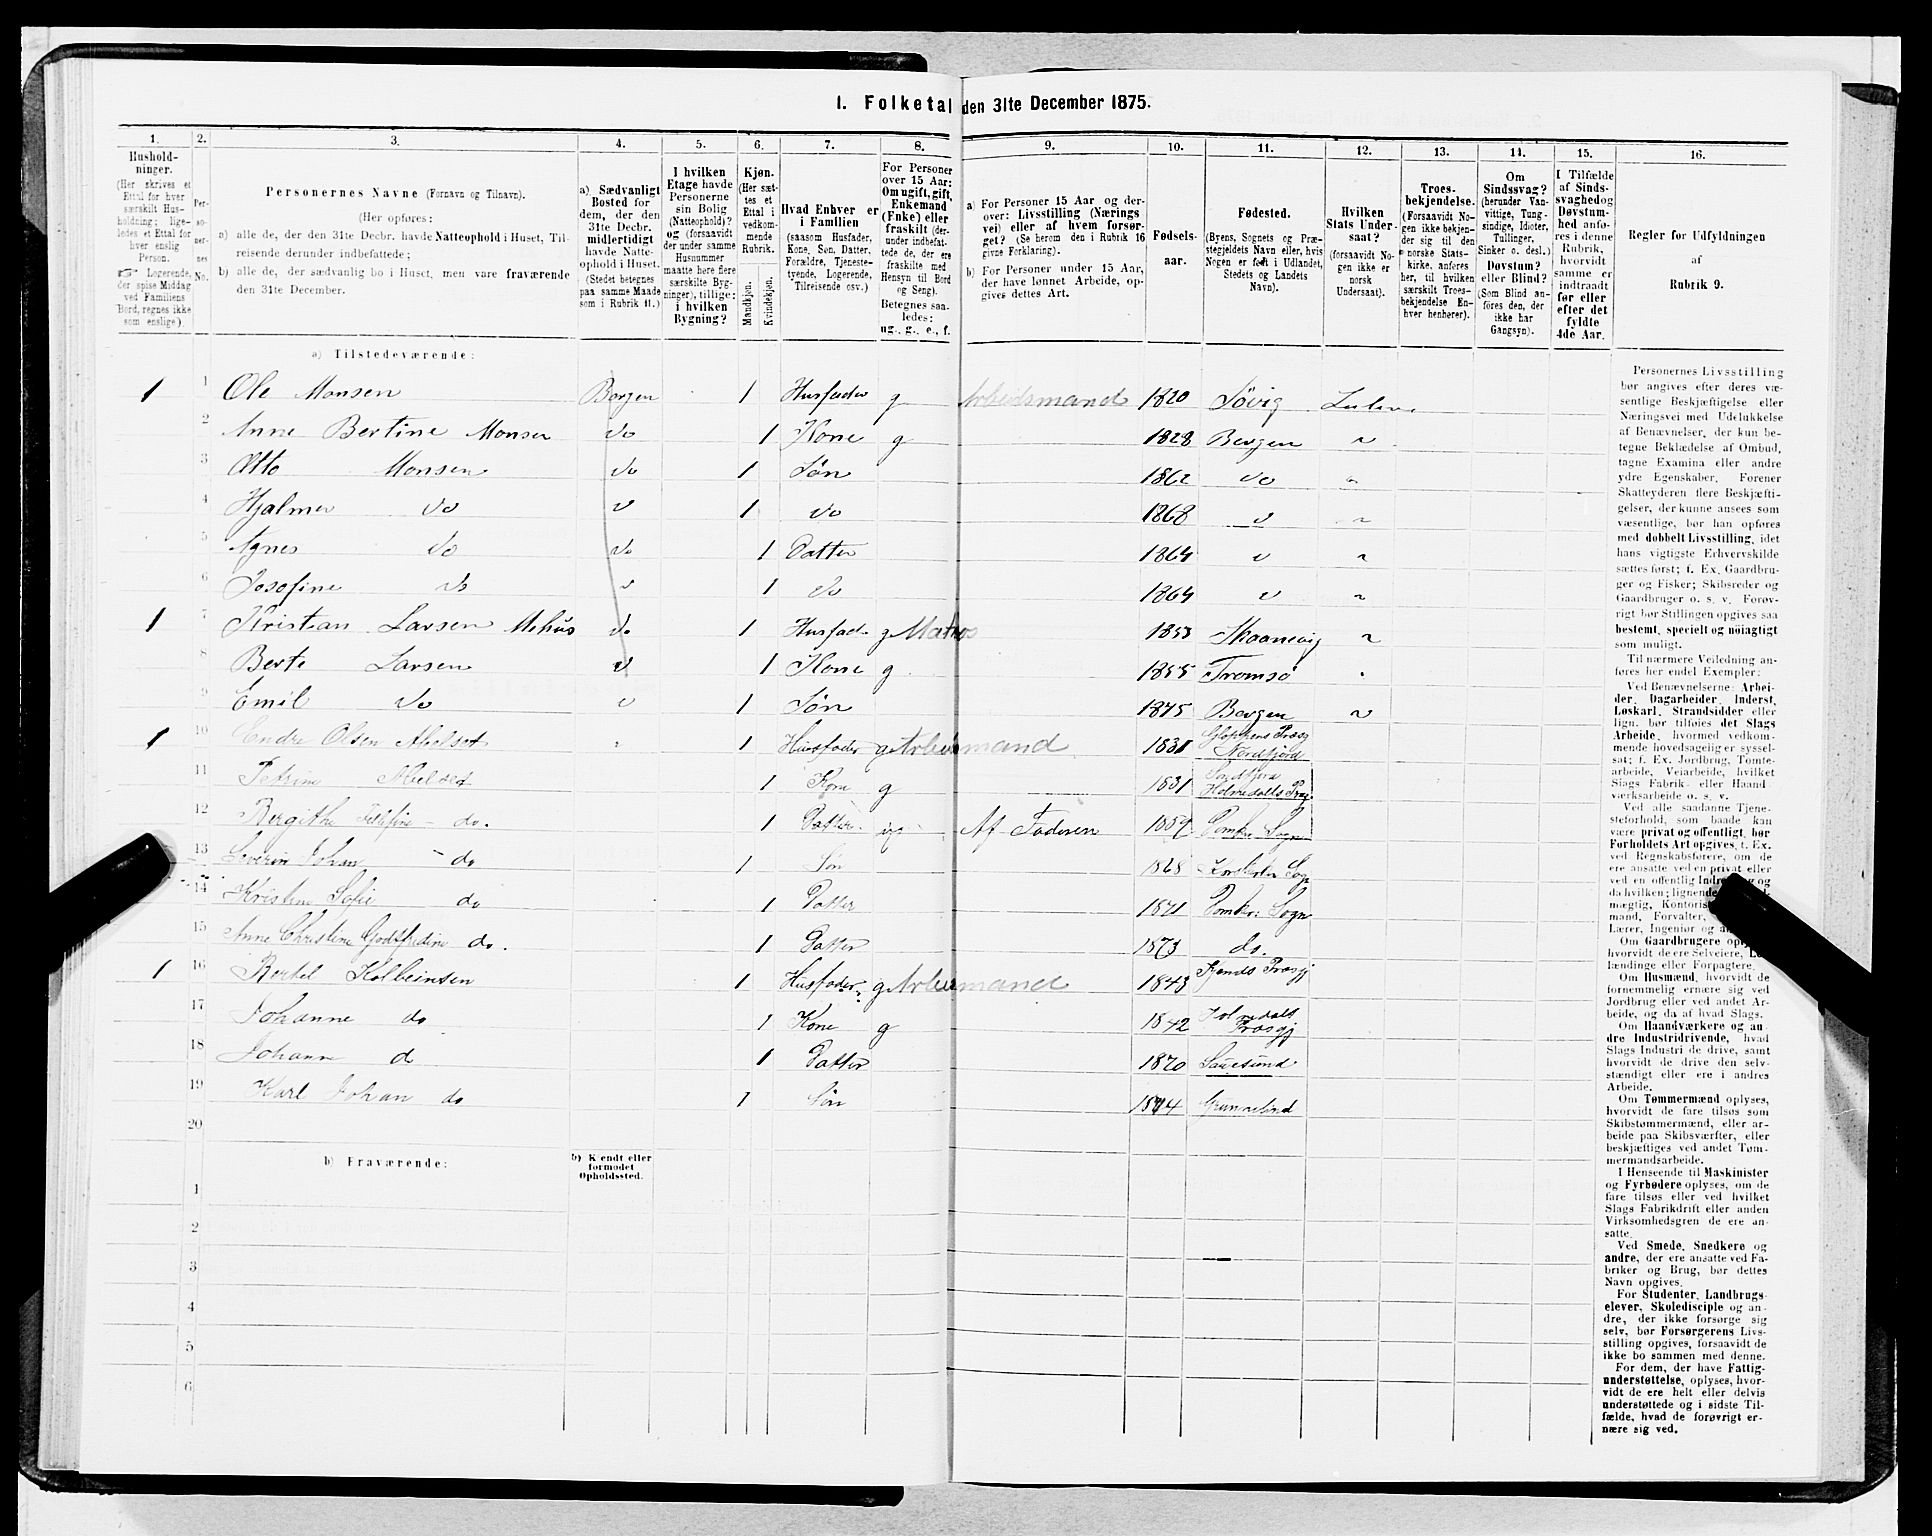 I. Folketal den 31te December 1875.
1. 2. 3. 4. 5. 6. 7. 8. 9. 10. 11. 12. 13. 14. 15. 16.
Hushold-
ninger.
(Her skrives et
Ettal for hver
særskilt Hus-
holdning; lige-
ledes et Ettal for
hver enslig
Person.
☞ Logerende,
der spise Middag
ved Familiens
Bord, regnes ikke
som enslige).
Per-
so-
ner-
nes
No.
Personernes Navne (Fornavn og Tilnavn).
(Her opføres:
a) alle de, der den 31te Decbr. havde Natteophold i Huset, Til-
reisende derunder indbefattede;
b) alle de, der sædvanlig bo i Huset, men vare fraværende
den 31te December.
a) Sædvanligt
Bosted for
dem, der den
31te Decbr.
midlertidigt
havde Natte-
ophold i Huset.
(Stedet betegnes
paa samme Maade
som i Rubrik 11.)
I hvilken
Etage havde
Personerne
sin Bolig
(Natteophold)?
og (forsaavidt
der under samme
Husnummer
maatte høre flere
særskilte Byg-
ninger), tillige:
i hvilken
Bygning?
Kjøn.
(Her sæt-
tes et
Ettal i
vedkom-
mende
Rubrik.
Mandkjøn.
Kvindekjøn.
Hvad Enhver er
i Familien
(saasom Husfader,
Kone, Søn, Datter,
Forældre, Tjeneste-
tyende, Logerende,
Tilreisende osv.)
For Personer
over 15 Aar:
Om ugift, gift,
Enkemand
(Enke) eller
fraskilt (der-
under indbefat-
tede de, der ere
fraskilte med
Hensyn til Bord
og Seng).
Betegnes saa-
ledes:
ug., g., e., f.
a) For Personer 15 Aar og der-
over: Livsstilling (Nærings
vei) eller af hvem forsør-
get? (Se herom den i Rubrik 16
givne Forklaring).
b) For Personer under 15 Aar,
der have lønnet Arbeide, op-
gives dettes Art.
Fødsels-
aar.
Fødested.
(Byens, Sognets og Præ-
stegjeldets Navn eller, hvis
Nogen er født i Udlandet,
Stedets og Landets
Navn).
Hvilken
Stats Under-
saat?
(forsaavidt No-
gen ikke er
norsk
Undersaat).
Troes-
bekjendelse.
(Forsaavidt No-
gen ikke bekjen-
der sig til den
norske Stats-
kirke, anføres
her, til hvilken
særskilt Troes-
bekjendelse En-
hver henhører).
Om
Sindssvag?
(herunder Van-
vittige, Tung-
sindige, Idioter,
Tullinger,
Sinker o. desl.).
Døvstum?
eller Blind?
(Som Blind an-
føres den, der
ikke har
Gangsyn).
I Tilfælde
af Sinds-
svaghed og
Døvstum-
hed anfø-
res i denne
Rubrik,
hvorvidt
samme er
indtraadt
før eller
efter det
fyldte
4de Aar.
Regler for Udfyldningen
af
Rubrik 9.
a) Tilstedeværende:
1 1 Ole Monsen Bergen 1 Husfader g Arbeidsmand 1820 Løvig
2 Anne Bertine Monsen do 1 Kone g 1828 Bergen
3 Otto Monsen do 1 Søn 1862 do
4 Hjalmer do 1 do 1868
5 Agnes do do 1 Datter 1864
6 Josefine do 1 do 1864
1 7 Kristian Larsen Mehus do 1 Husfad. g Matros 1853 Skaanevig
8 Berte Larsen 1 Kone g 1855 Tromsø
9 Emil do 1 Søn 1875 Bergen
1 10 Endre Olsen 1 Husfader g Arbeidsmand 1831 Gloppens Præsg Nordfjord
11 Petrine 1 Kone g 1831 Søndfjord Holmedals Præg
12 Bergithe do. 1 Datter ug Af Faderen 1859 Sogn
13 Severin Johan do 1 Søn 1868 Sogn
14 Kristine Sofie do 1 Datter 1871 Sogn
15 Anne Christine Godtfredine do. 1 Datter 1873 do.
1 16 Bertel Kolbeinsen 1 Husfader g Arbeidsmand 1843 Præsgj
17 Johanne do 1 Kone g 1842 Holmedals Præsgj
18 Johanne d 1 Datter 1870
19 Karl Johan do 1 Søn 1874
20
b) Fraværende:
b) Kjendt eller
formodet
Opholdssted.
1
2
3
4
5
6
Personernes Livsstilling
bør angives efter deres væ-
sentlige Beskjæftigelse eller
Næringsvei med Udelukkelse
af Benævnelser, der kun be-
tegne Beklædelse af Ombud,
tagne Examina eller andre
ydre Egenskaber. Forener
Skatteyderen flere Beskjæfti-
gelser, der kunne ansees som
væsentlige, bør han opføres
med dobbelt Livsstilling, idet
hans vigtigste Erhvervskilde
sættes først; f. Ex. Gaardbru-
ger og Fisker; Skibsreder og
Gaardbruger o. s. v. Forøv-
rigt bør Stillingen opgives saa
bestemt, specielt og nøiagtigt
som muligt.
Til nærmere Veiledning an-
føres her endel Exempler:
Ved Benævnelserne: Arbei-
der, Dagarbeider, Inderst,
Løskarl, Strandsidder eller
lign. bør tilføies det Slags
Arbeide, hvormed vedkom-
mende hovedsagelig er syssel-
sat; f. Ex. Jordbrug, Tomte-
arbeide, Veiarbeide, hvilket
Slags Fabrik- eller Haand
værksarbeide o. s. v.
Ved alle saadanne Tjene-
steforhold, som baade kan
være privat og offentligt, bør
Forholdets Art opgives, f. Ex.
ved Regnskabsførere, om de
ere ansatte ved en privat eller
ved en offentlig
da hvilken; lignende
mægtig, Kontorist
mand, Forvalter,
Lærer, Ingeniør og
Om Gaardbrugere oplyses,
hvorvidt de ere Selveiere, Lei-
lændinge eller Forpagtere.
Om Husmænd, hvorvidt de
fornemmelig ernære sig ved
Jordbrug eller ved andet Ar-
beide, og da af hvad Slags.
Om Haandværkere og an-
dre Industridrivende, hvad
Slags Industri de drive, samt
hvorvidt de drive den selv-
stændigt eller ere i andres
Arbeide.
Om Tømmermænd oplyses,
hvorvidt de fare tilsøs som
Skibstømmermænd, eller ar-
beide paa Skibsværfter, eller
beskjæftiges ved andet Tøm-
mermandsarbeide.
I Henseende til Maskinister
og Fyrbødere oplyses, om de
fare tilsøs eller ved hvilket
Slags Fabrikdrift eller anden
Virksomhedsgren de ere an-
satte.
Ved Smede, Snedkere og
andre, der ere ansatte ved Fa-
briker og Brug, bør dettes
Navn opgives.
For Studenter, Landbrugs-
elever, Skoledisciple og an-
dre, der ikke forsørge sig
selv, bør Forsørgerens Livs-
stilling opgives, forsaavidt de
ikke bo sammen med denne.
For dem, der have Fattig-
understøttelse, oplyses, hvor-
vidt de ere helt eller delvis
understøttede og i sidste Til-
fælde, hvad de forøvrigt er-
nære sig ved.